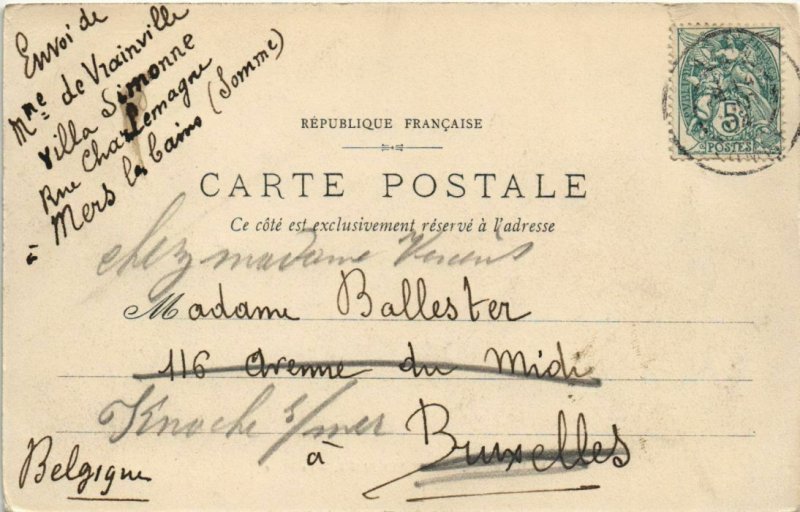 Envoi de
Mme de Vrainville
Villa Simonne
Rue Charlemagne
à Mers les bains (Somme)
RÉPUBLIQUE FRANÇAISE
CARTE POSTALE
Ce côté est exclusivement réservé à l'adresse
chez madame
Madame Ballester
116 Avenue du Midi
Knocke s/mer
à Bruxelles
Belgique
5
POSTES